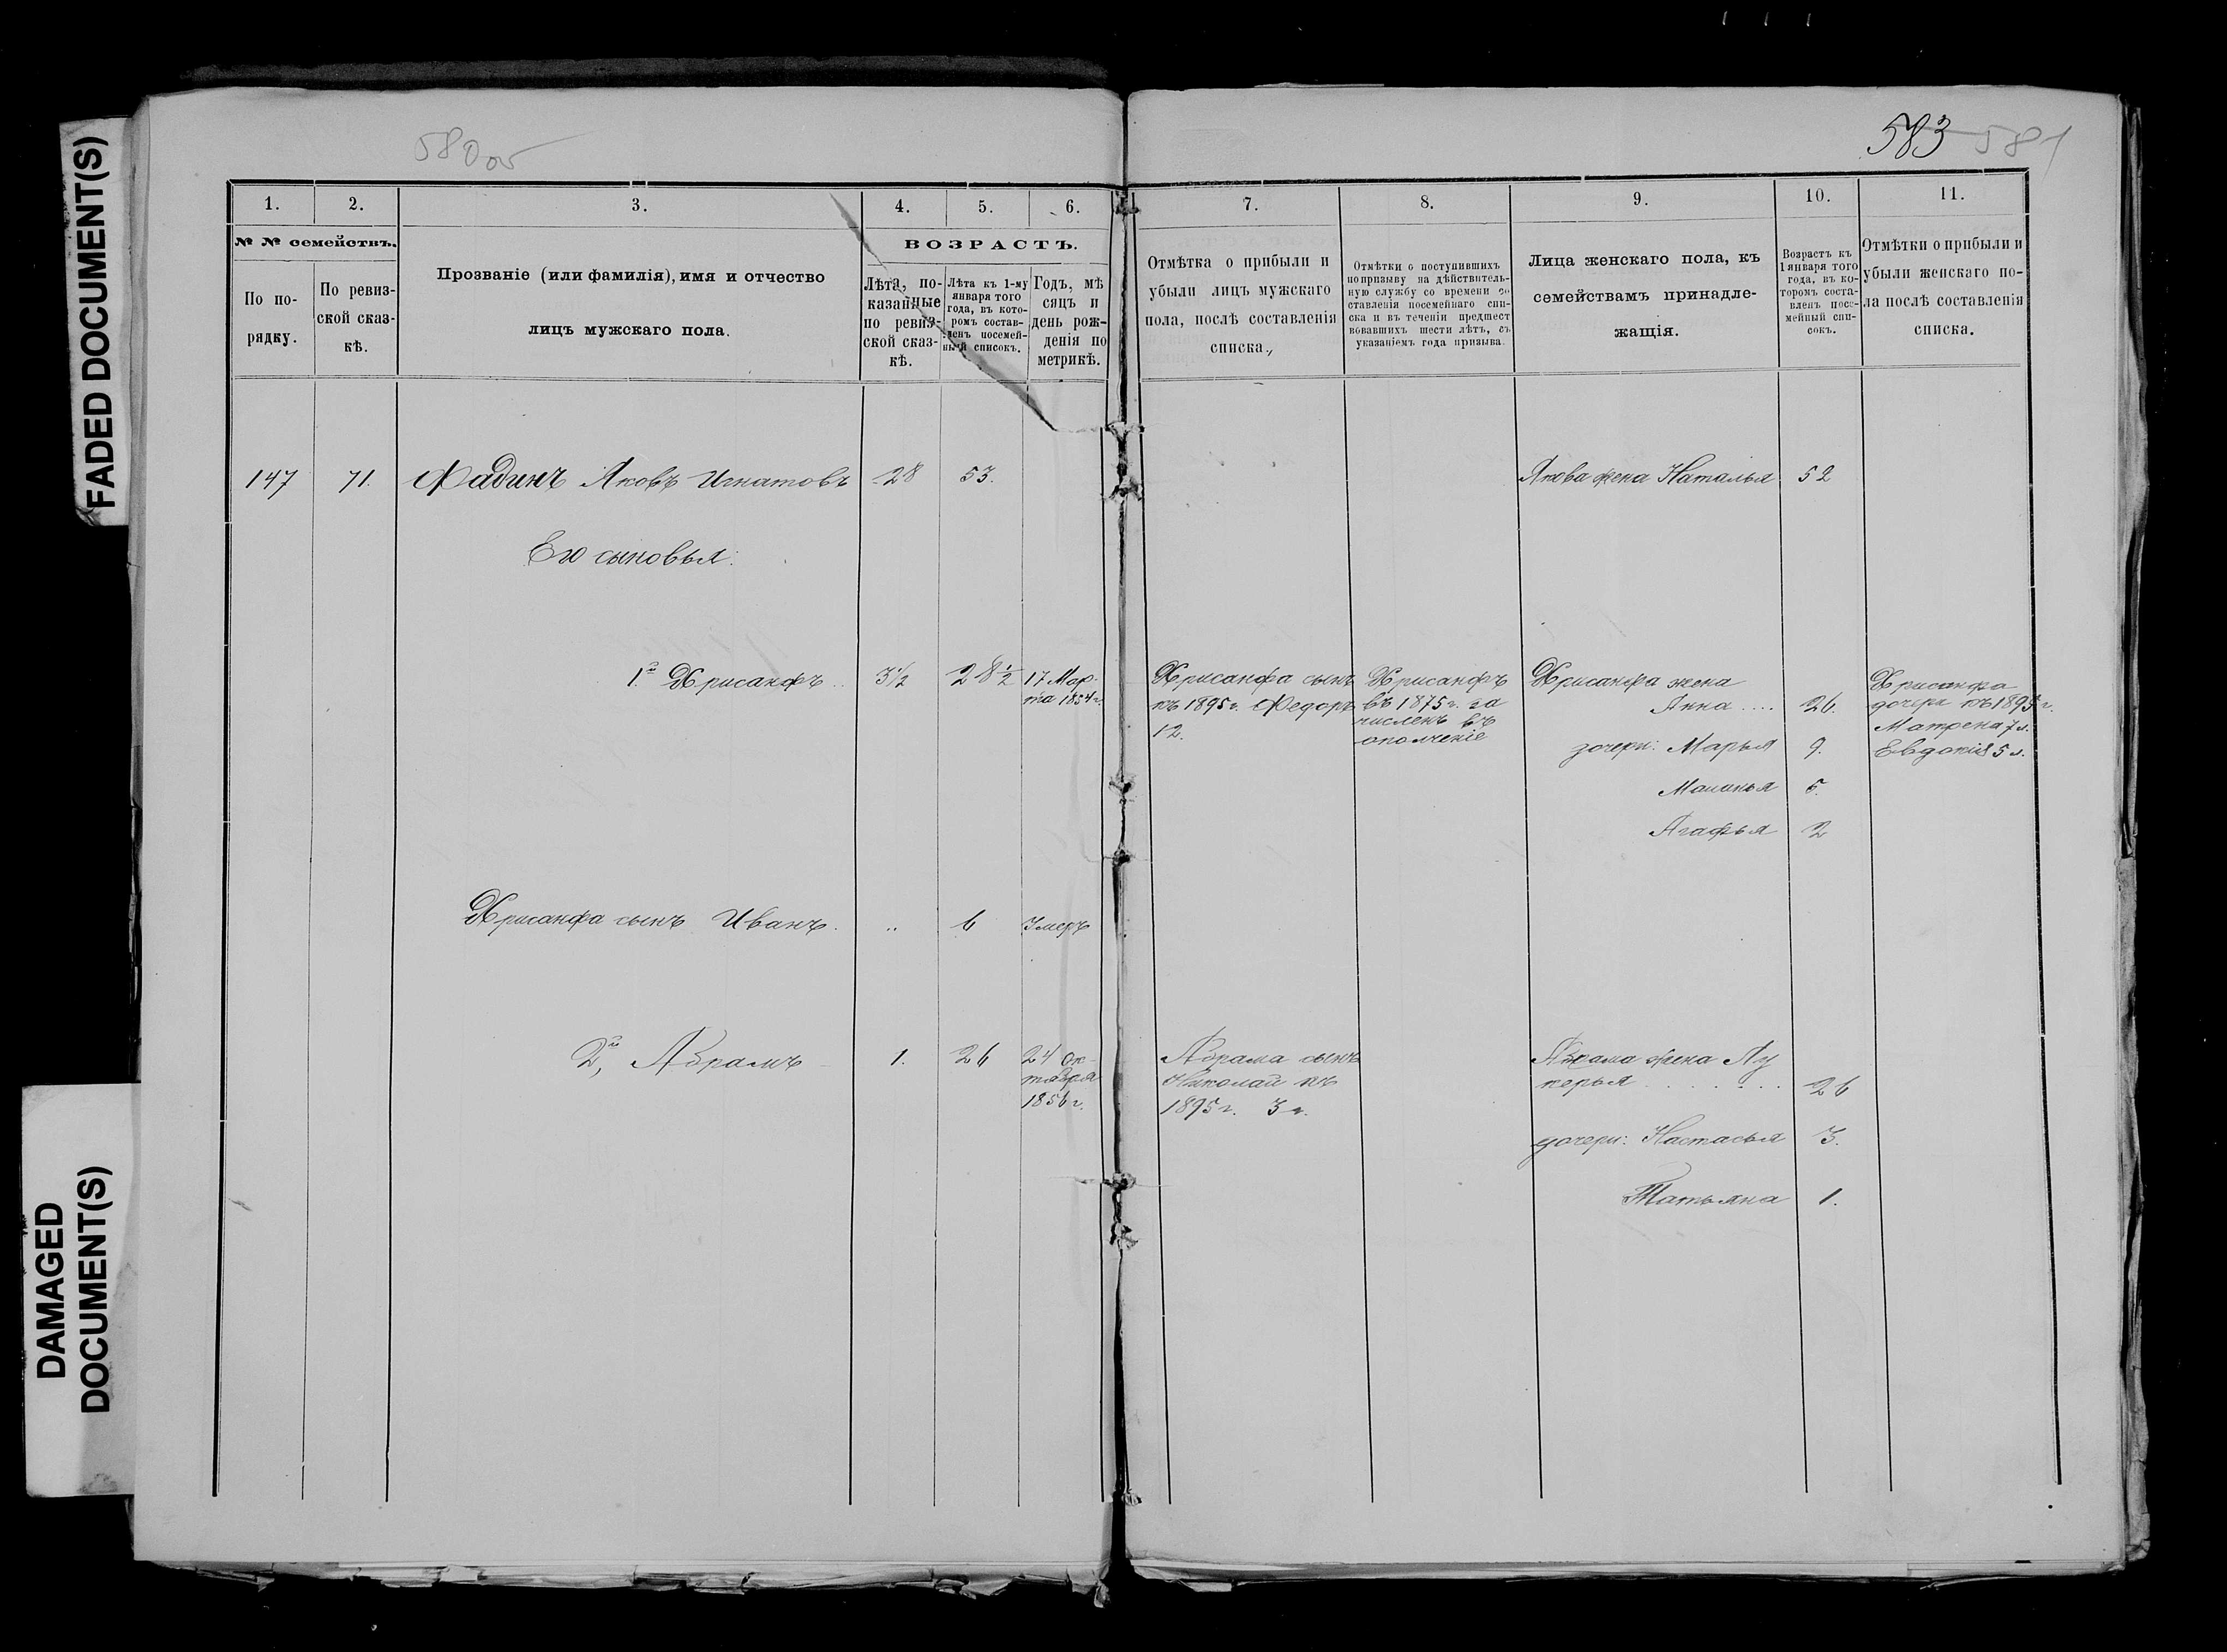 FADED DOCUMENT(S)
DAMAGED
DOCUMENT(S)
580 об
583 581
1.
2.
3.
4.
5.
6.
№ № семействъ.
По по-
рядку.
По ревиз-
ской сказ-
кѣ.
Прозваніе (или фамилія), имя и отчество
лицъ мужскаго пола.
ВОЗРАСТЪ.
Лѣта, по-
казанные
по ревиз-
ской сказ-
кѣ.
Лѣта къ 1-му
января того
года, въ кото-
ромъ состав-
ленъ посемей-
ный списокъ.
Годъ, мѣ
сяцъ и
день рож-
денія по
метрикѣ.
7.
8.
9.
10.
11.
Отмѣтка о прибыли и
убыли лицъ мужскаго
пола, послѣ составленія
списка.
Отмѣтки о поступившихъ
по призыву на дѣйствитель-
ную службу со времени со
ставленія посемейнаго спи-
ска и въ теченіи предшест
вовавшихъ шести лѣтъ, съ
указаніемъ года призыва.
Лица женскаго пола, къ
семействамъ принадле-
жащія.
Возрастъ къ
1 января того
года, въ ко-
торомъ соста-
вленъ посе-
мейный спи-
сокъ.
Отмѣтки о прибыли и
убыли женскаго по-
ла послѣ составленія
списка.
147 71. Фадинъ Яковъ Игнатовъ 28 53.
Якова жена Наталья 52
Его сыновья:
1.й Хрисанфъ .. 3½ 28½
17 Мар-
та 1854 г.
Хрисанфа сынъ
къ 1895 г. Федоръ
12.
Хрисанфъ
въ 1875 г. за
численъ въ
ополченіе
Хрисанфа жена
Анна .... 26.
дочери: Марья 9.
Маланья 5.
Агафья 2
Хрисанфа
дочери къ 1895 г.
Матрена 7 л.
Евдокія 5 л.
Хрисанфа сынъ Иванъ. .. 6 Умеръ
2й, Абрамъ 1. 26
24 Ок-
тября
1856 г.
Абрама сынъ
Николай къ
1895 г. 3 г.
Абрама жена Лу
керья . . . . . . . 26
дочери: Настасья 3.
Татьяна 1.